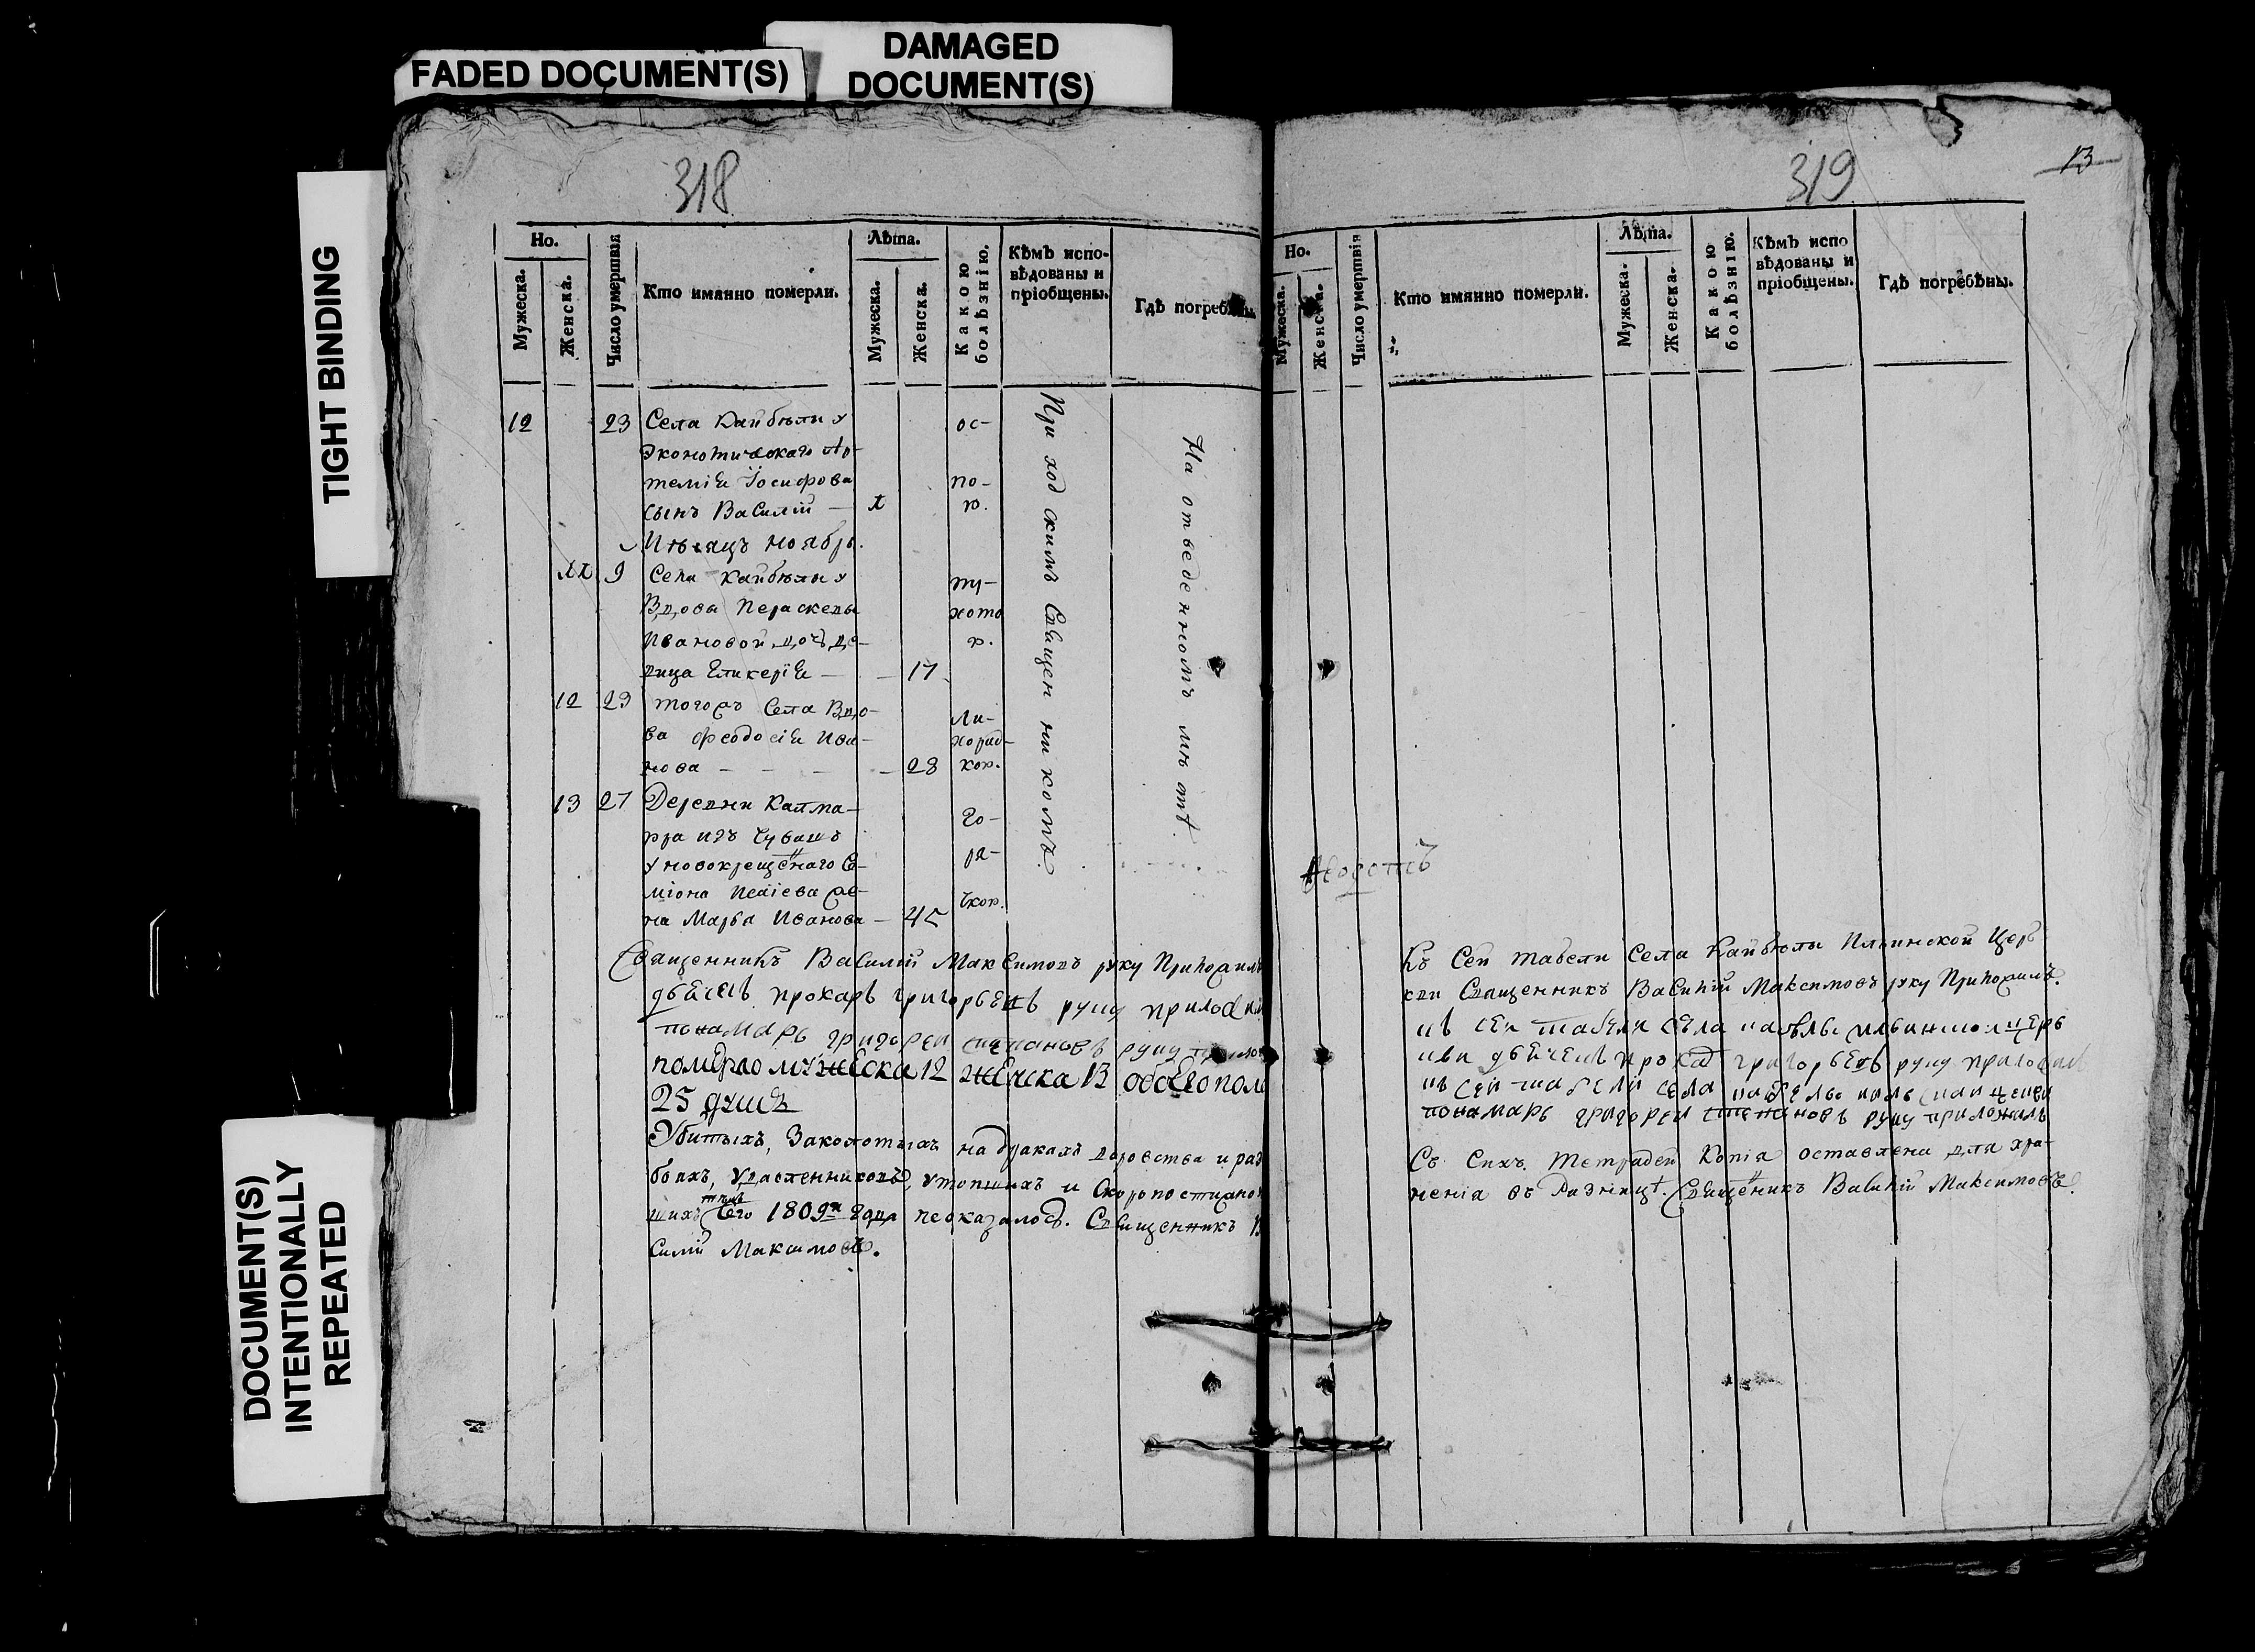 FADED DOCUMENT(S)
DAMAGED DOCUMENT(S)
TIGHT BINDING
DOCUMENT(S) INTENTIONALLY REPEATED
318
Но.
Мужеска.
Женска.
Число умертвія
Кто имянно померли.
Лѣта.
Мужеска.
Женска.
Какою болѣзнію.
Кѣмъ испо-
вѣдованы и
пріобщены.
Гдѣ погребены.
12 23 Села Кайбѣлы у ос-
Экономическаго Ар-
темія Іосифова по-
сынъ Василій — ю.
Мѣсяцъ ноябрь.
9 Села Кайбѣлы у
Вдова Параскевы хото
Ивановой дочь де- ю.
вица Гликерія — 17
12 23 тогожъ Села Вдо- Ли-
ва Феодосія Ива- хорад-
нова — — — 28 кою.
13 27 Деревни Калма-
юра изъ Чувашъ Го-
у новокрещенаго Се- ря-
міона Исаіева же- чкою.
на Марѳа Иванова — 45
Приходскимъ Священникомъ
На отведенномъ мѣстѣ.
Священникъ Василій Максимовъ руку Приложилъ
дьячекъ прокаръ григорьевъ руку приложил
понамарь григореи степановъ руку
померло мужеска 12 женска 13 обоего пола
25 душъ
Убитыхъ, Заколотыхъ на дракахъ воровства и раз
бояхъ, удавленниковъ, утопшихъ и Скоропостижно
шихъ Сего 1809го Года неоказалось. Священникъ В
силій Максимовъ.
319
13
Но.
Мужеска.
Женска.
Число умертвія
Кто имянно померли.
Лѣта.
Мужеска.
Женска.
Какою болѣзнію.
Кѣмъ испо
вѣдованы и
пріобщены.
Гдѣ погребѣны.
Къ Сей табели Села Кайбѣлы Ильинской Церк
кви Священникъ Василій Максимовъ руку Приложилъ.
къ сеи табели села каибѣлы ильинскои церк
кви дьячекъ прокар григорьевъ руку приложил
къ сеи табели села каибелы церкви
понамарь григореи степановъ руку приложилъ
Съ Сихъ Тетрадей Копіа оставлена для хра-
ненія въ Ризницѣ. Священикъ Василій Максимовъ.